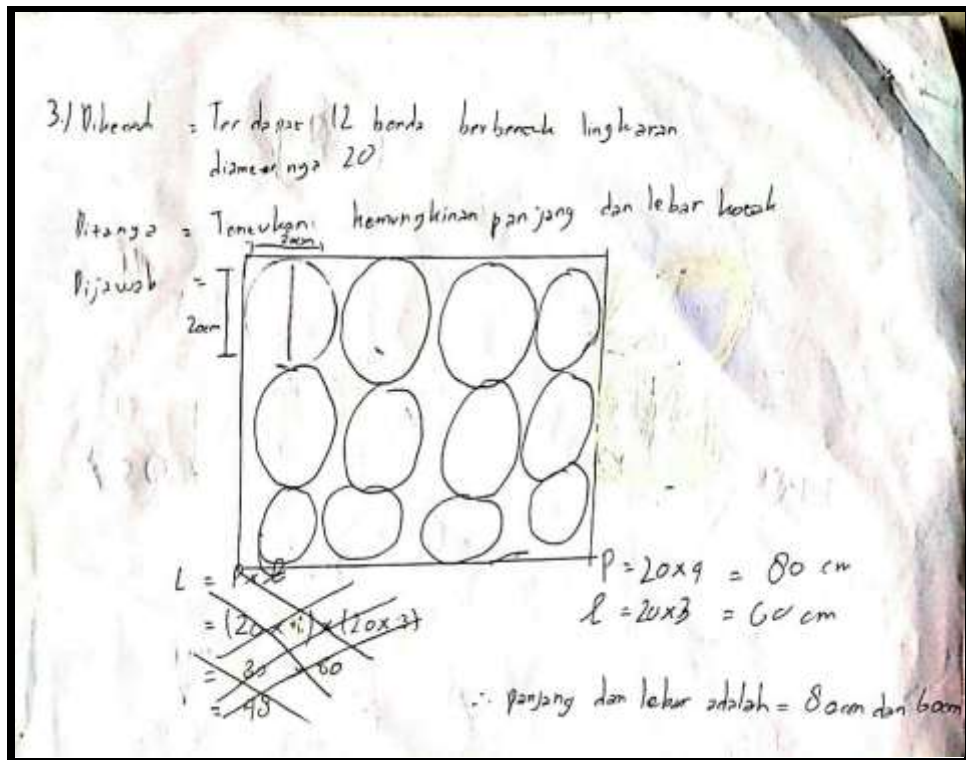 3.) Diketah = Terdapat 12 benda berbentuk lingkaran
diameternya 20
Ditanya = Temukan kemungkinan panjang dan lebar kotak
Dijawab =
20cm
20cm
L = P x l
= (20 x 4) x (20 x 3)
= 80 x 60
= 48
P = 20x4 = 80 cm
l = 20x3 = 60 cm
∴ panjang dan lebar adalah = 80cm dan 60cm